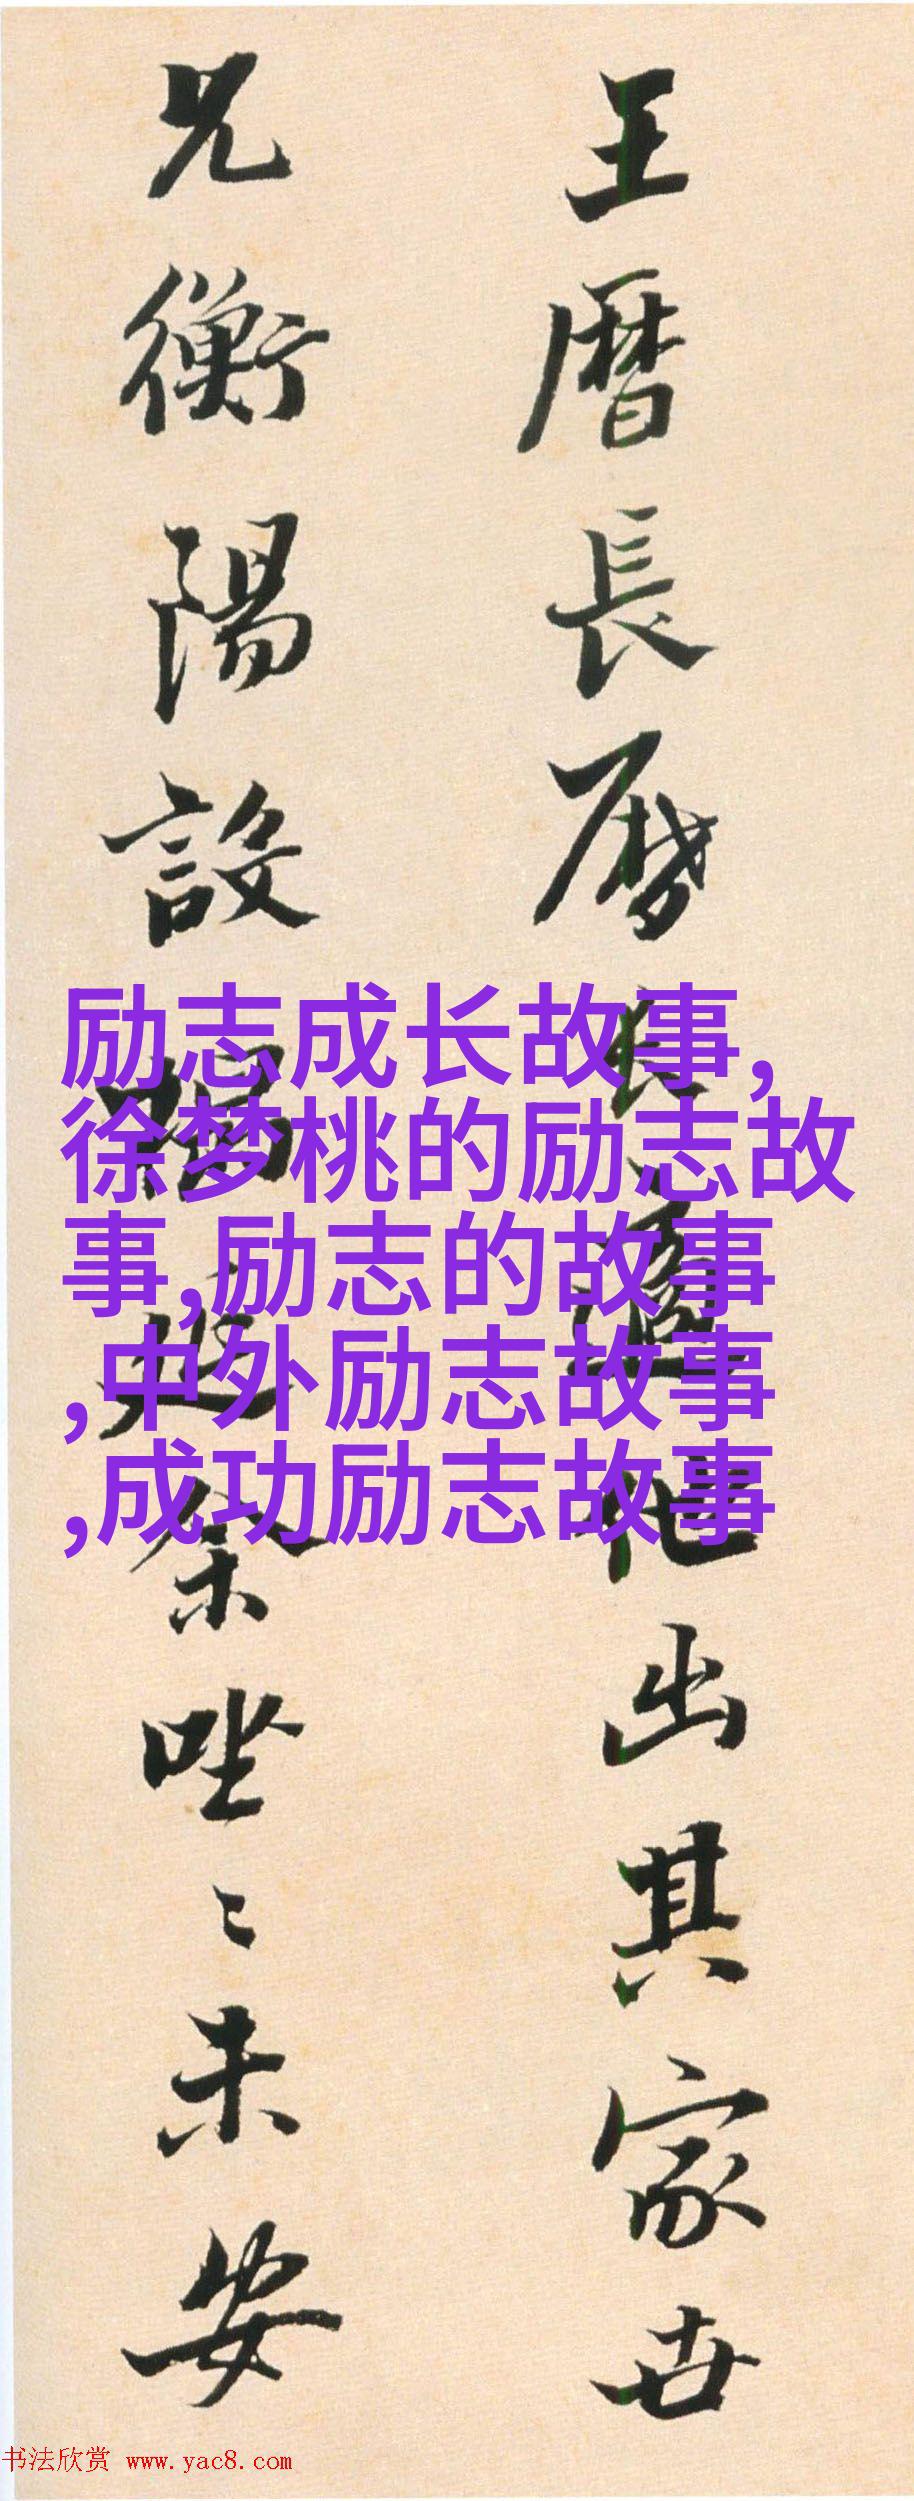 王曆長長他出其家世
兄衡陽設榻坐〻未安
励志成长故事,
徐梦桃的励志故
事,励志的故事
,中外励志故事
,成功励志故事
书法欣赏 www.yac8.com